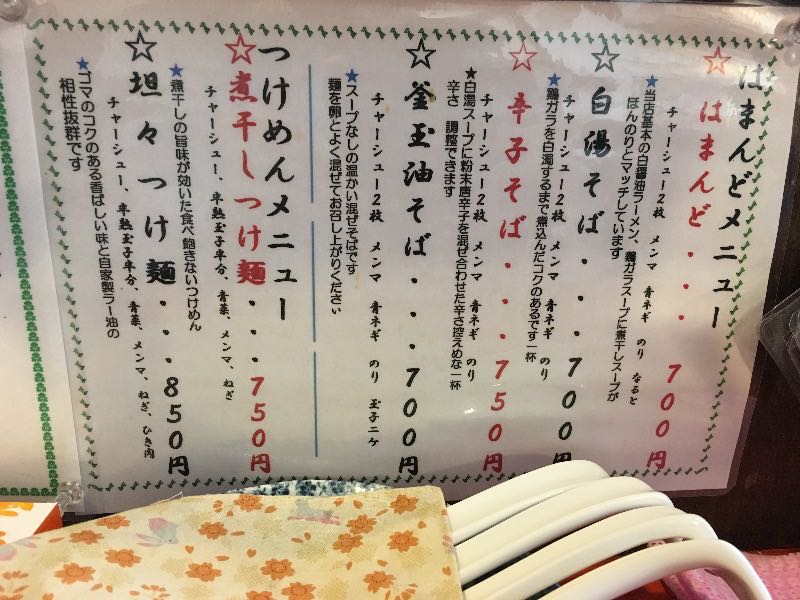 はまんどメニュー
☆はまんど・・・700円
チャーシュー2枚 メンマ 青ネギ のり なると
★当店基本の白醤油ラーメン、鶏ガラスープに煮干しスープが
ほんのりとマッチしています
☆白湯そば・・・700円
チャーシュー2枚 メンマ 青ネギ のり
★鶏ガラを白濁するまで煮込んだコクのあるです一杯
☆辛子そば・・・750円
チャーシュー2枚 メンマ 青ネギ のり
★白湯スープに粉末唐辛子を混ぜ合わせた辛さ控えめな一杯
辛さ 調整できます
☆釜玉油そば・・・700円
チャーシュー2枚 メンマ 青ネギ のり 玉子二ケ
★スープなしの温かい混ぜそばです
麺を卵とよく混ぜてお召し上がりください
つけめんメニュー
☆煮干しつけ麺・・・750円
チャーシュー、半熟玉子半分、青菜、メンマ、ねぎ
★煮干しの旨味が効いた食べ飽きないつけめん
☆坦々つけ麺・・・850円
チャーシュー、半熟玉子半分、青菜、メンマ、ねぎ、ひき肉
★ゴマのコクのある香ばしい味と自家製ラー油の
相性抜群です